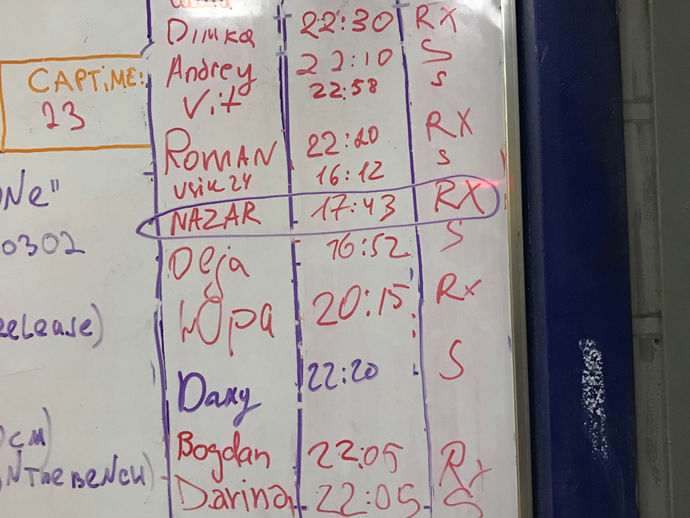 CAPTIME:
23
ONe"
0302
eLease)
CM)
NTheBENCH)
DIMKa 22:30 RX
Andrey 22:10 S
Vit 22:58 S
ROMAN 22:20 RX
usik24 16:12 S
NAZAR 17:43 RX
Deja 16:52 S
Юра 20:15 Rx
Daxy 22:20 S
Bogdan 22:05 Rx
Darina 22:05 S